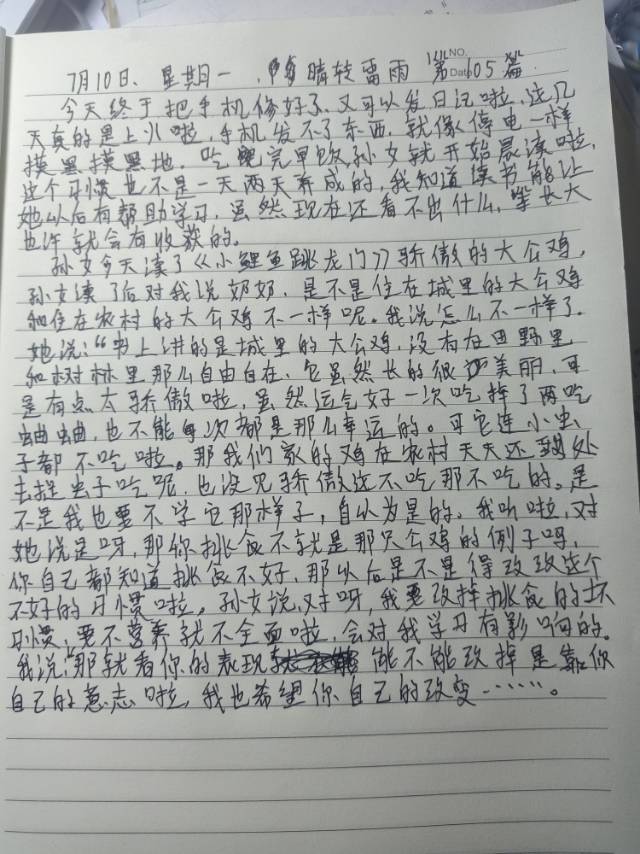 7月10日、星期一、晴转雷雨 第105篇
NO.
Date
今天终于把手机修好了、又可以发日记啦,这几
天真的是上火啦,手机发不了东西,就像停电一样
摸黑摸黑地,吃完早饭,孙女就开始晨读啦,
这个习惯也不是一天两天养成的,我知道读书能让
她以后有帮助学习,虽然现在还看不出什么,等长大
也许就会有收获的。
孙女今天读了《小鲤鱼跳龙门》骄傲的大公鸡,
孙女读了后对我说奶奶,是不是住在城里的大公鸡
和住在农村的大公鸡不一样呢。我说怎么不一样了.
她说:“书上讲的是城里的大公鸡,没有在田野里
和树林里那么自由自在,它虽然长的很美丽,可
是有点太骄傲啦,虽然运气好一次吃掉了两吃
蛐蛐,也不能每次都是那么幸运的。可它连小虫
子都不吃啦。那我们家的鸡在农村天天还到处
去捉虫子吃呢,也没见骄傲这不吃那不吃的。是
不是我也要不学它那样子,自以为是的。我听啦,对
她说是呀,那你挑食不就是那只公鸡的例子吗,
你自己都知道挑食不好,那以后是不是得改改这个
不好的习惯啦。孙女说,对呀,我要改掉挑食的坏
习惯,要不营养就不全面啦,会对我学习有影响的。
我说,“那就看你的表现 能不能改掉是靠你
自己的意志啦,我也希望你自己的改变……。